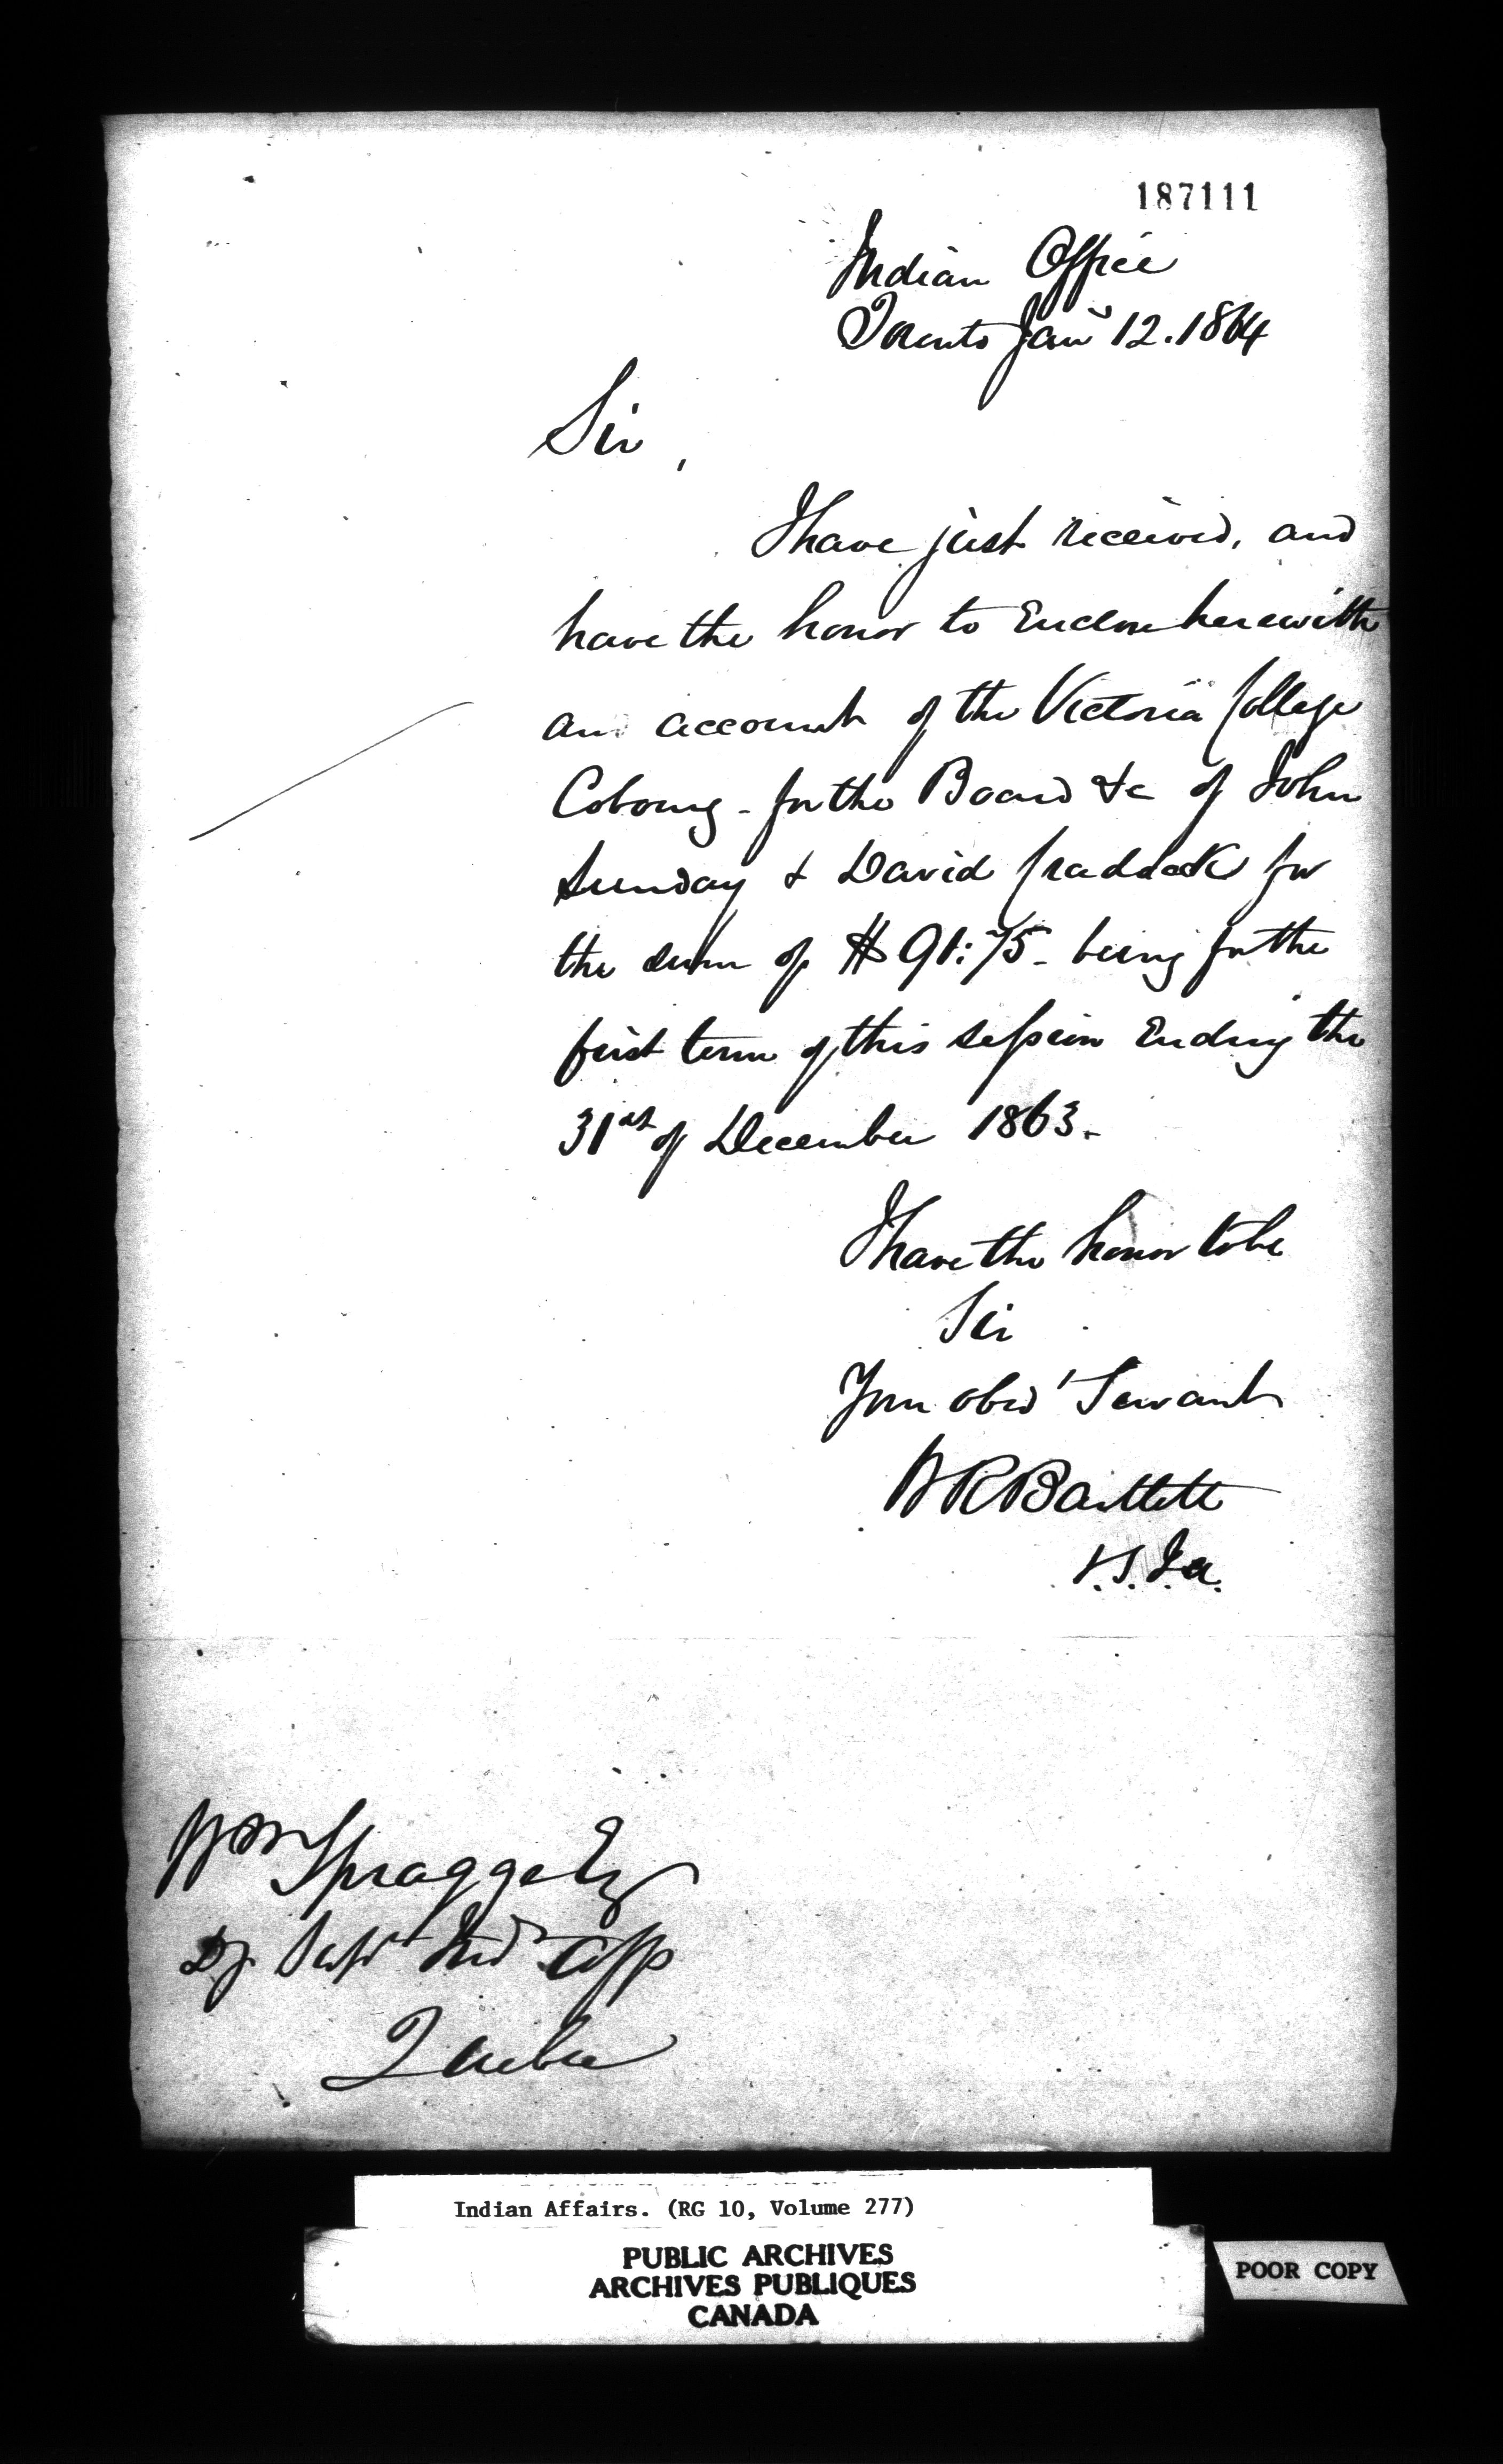 187111
Indian Office
Toronto Jany 12. 1864
Sir,
I have just received, and
have the honor to Enclose herewith
an account of the Victoria College
Cobourg - for the Board &c of John
Sunday & David Craddock for
the sum of $91:75 - being for the
first term of this session Ending the
31st of December 1863.
I have the honor to be
Sir
Your obed't Servant
W R Bartlett
V.S.I.A.
Wm Spragge Esq
Dy Supt Ind Aff
Quebec
Indian Affairs. (RG 10, Volume 277)
PUBLIC ARCHIVES
ARCHIVES PUBLIQUES
CANADA
POOR COPY